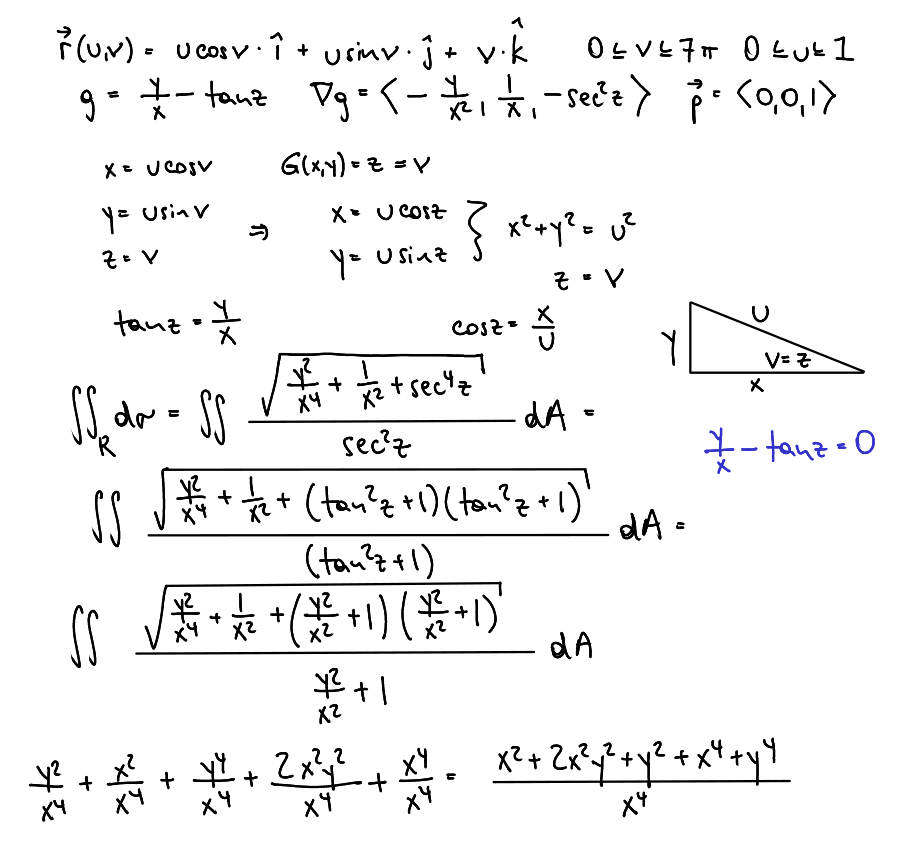 r⃗(u,v) = u cos v · î + u sin v · ĵ + v · k̂   0 ≤ v ≤ 7π   0 ≤ u ≤ 1
g = y/x − tan z   ∇g = ⟨−y/x², 1/x, −sec²z⟩   p⃗ = ⟨0,0,1⟩
x = u cos v   G(x,y) = z = v
y = u sin v   ⇒   x = u cos z } x² + y² = u²
z = v   y = u sin z
z = v
tan z = y/x   cos z = x/u
y   u   v = z   x
∬_R dσ = ∬ √(y²/x⁴ + 1/x² + sec⁴z) / sec²z dA =
y/x − tan z = 0
∬ √(y²/x⁴ + 1/x² + (tan²z + 1)(tan²z + 1)) / (tan²z + 1) dA =
∬ √(y²/x⁴ + 1/x² + (y²/x² + 1)(y²/x² + 1)) / (y²/x² + 1) dA
y²/x⁴ + x²/x⁴ + y⁴/x⁴ + 2x²y²/x⁴ + x⁴/x⁴ = (x² + 2x²y² + y² + x⁴ + y⁴) / x⁴